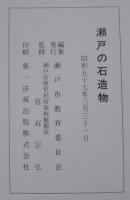 瀬戸の石造物
昭和五十七年三月三十一日
編集
発行 瀬戸市教育委員会
監修 瀬戸市歴史民俗資料館館長
宮石宗弘
印刷 第一法規出版株式会社